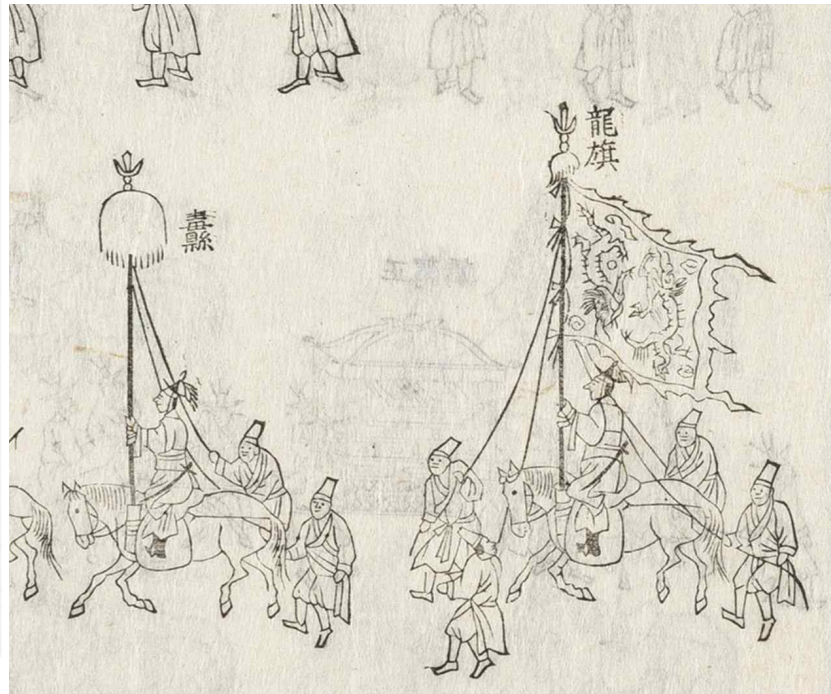 龍旗
纛